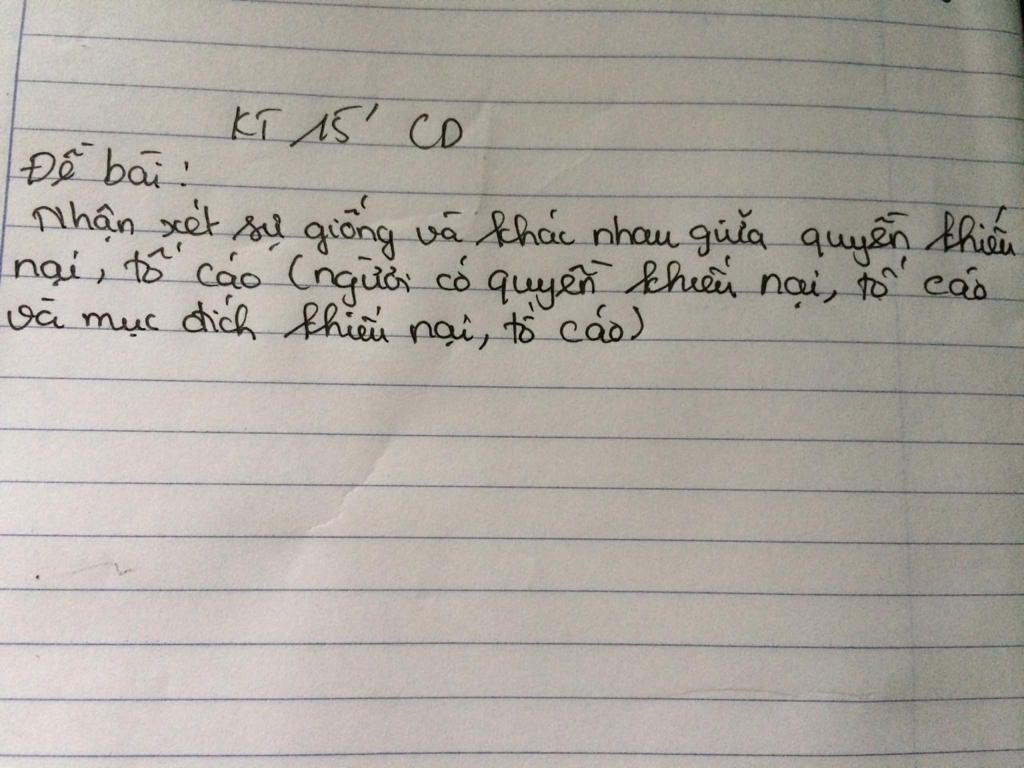 KT 15' CD
Đề bài:
Nhận xét sự giống và khác nhau giữa quyền khiếu
nại, tố cáo (người có quyền khiếu nại, tố cáo
và mục đích khiếu nại, tố cáo)